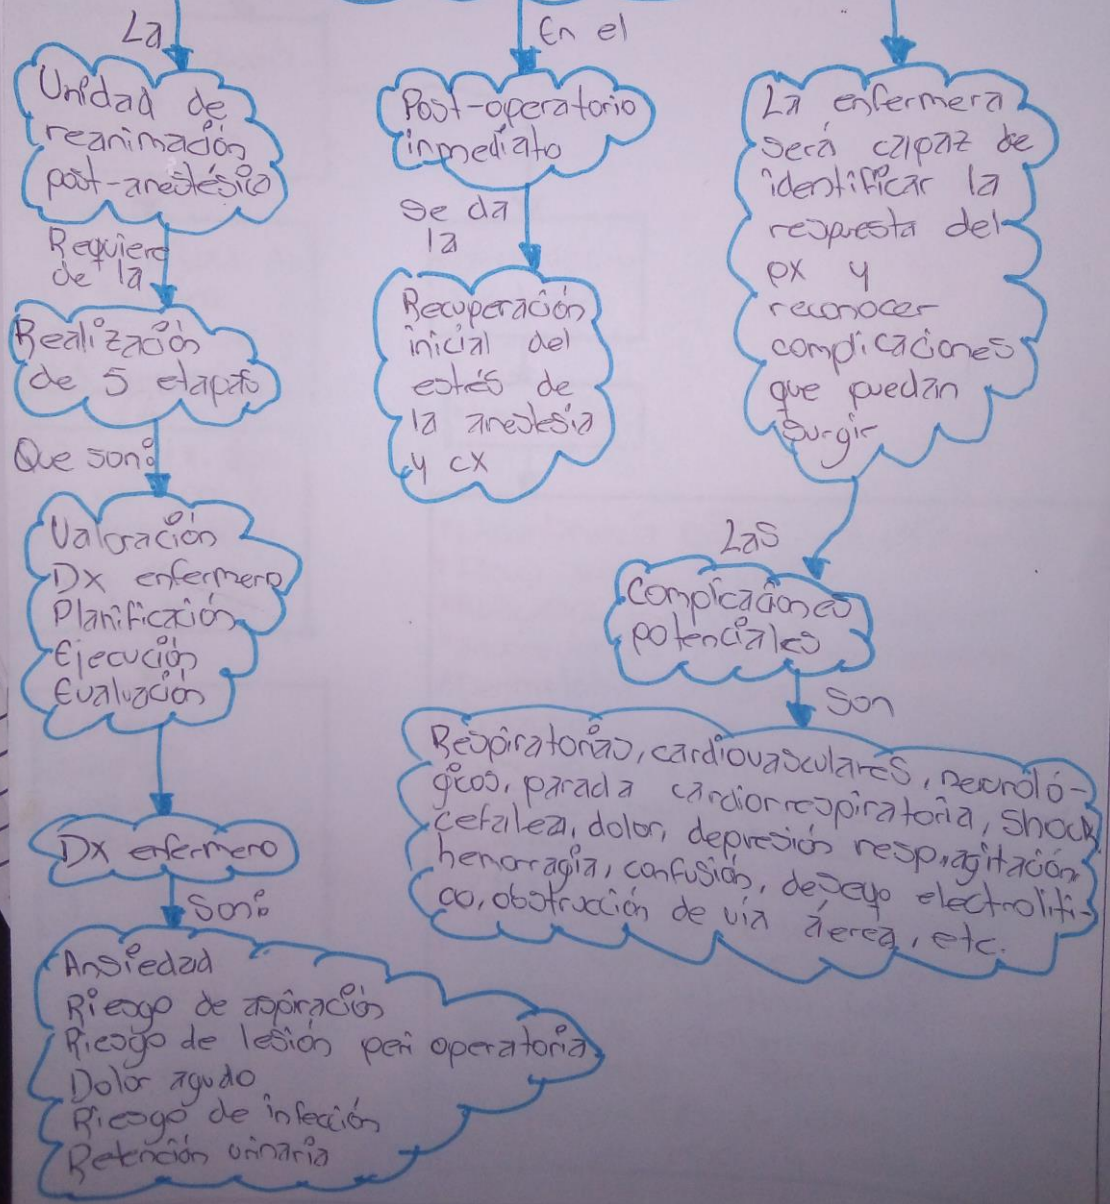 La
Unidad de
reanimación
post-anestésica
Requiere
de la
Realización
de 5 etapas
Que son:
Valoración
Dx enfermero
Planificación
Ejecución
Evaluación
Dx enfermero
Son:
Ansiedad
Riesgo de aspiración
Riesgo de lesión peri operatoria
Dolor agudo
Riesgo de infección
Retención urinaria
En el
Post-operatorio
inmediato
Se da
la
Recuperación
inicial del
estés de
la anestesia
y cx
La enfermera
será capaz de
identificar la
respuesta del
px y
reconocer
complicaciones
que puedan
surgir
Las
Complicaciones
potenciales
Son
Respiratorias, cardiovasculares, neuroló-
gicos, parada cardiorrespiratoria, shock
cefalea, dolor, depresión resp, agitación
hemorragia, confusión, electrolíti-
co, obstrucción de vía áerea, etc.